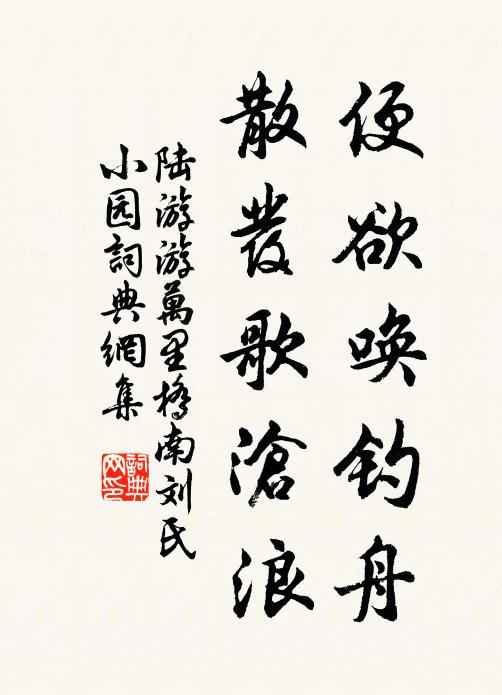 便欲唤钓舟
散发歌滄浪
陆游游萬里橋南刘氏
小园詞典網集
詞典网印